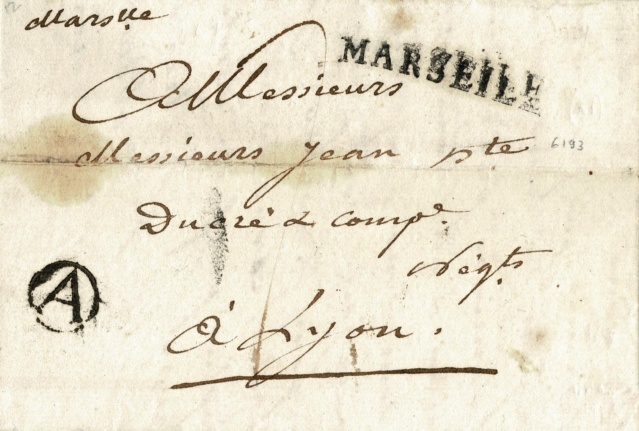 Marslle
MARSEILE
A Messieurs
Messieurs Jean Bte
6193
Ducré & Compe
Négts
A
à Lyon.